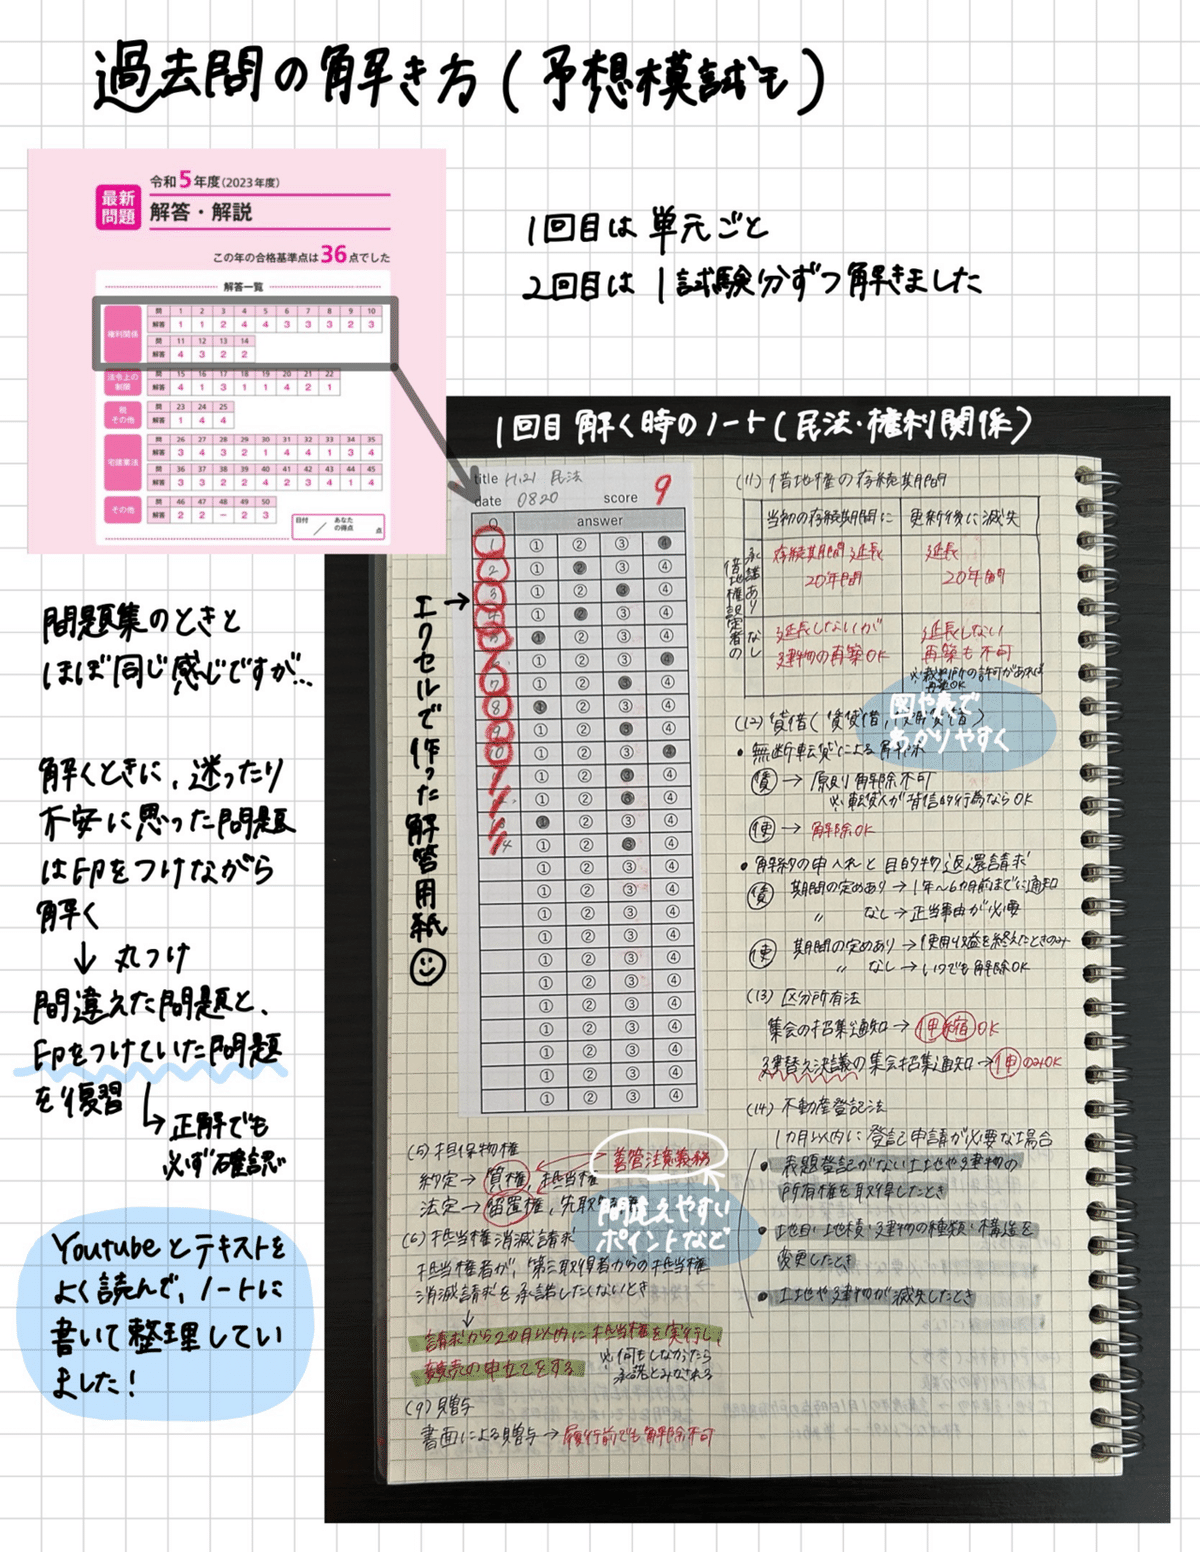 過去問の解き方(予想模試も)
最新
問題
令和5年度(2023年度)
解答・解説
この年の合格基準点は36点でした
解答一覧
権利関係
問 1 2 3 4 5 6 7 8 9 10
解答 1 1 2 4 4 3 3 3 2 3
問 11 12 13 14
解答 4 3 2 2
法令上の
制限
問 15 16 17 18 19 20 21 22
解答 4 1 3 1 1 4 2 1
税
その他
問 23 24 25
解答 1 4 4
宅建業法
問 26 27 28 29 30 31 32 33 34 35
解答 3 4 3 2 1 4 4 1 3 4
問 36 37 38 39 40 41 42 43 44 45
解答 3 3 2 2 4 2 3 4 1 4
その他
問 46 47 48 49 50
解答 2 2 − 2 3
日付 / あなた
の得点 点
1回目は単元ごと
2回目は1試験分ずつ解きました
1回目 解く時のノート(民法・権利関係)
エクセルで作った解答用紙
title H21 民法
date 0820 score 9
Q answer
1 ① ② ③ ④
2 ① ② ③ ④
3 ① ② ③ ④
4 ① ② ③ ④
5 ① ② ③ ④
6 ① ② ③ ④
7 ① ② ③ ④
8 ① ② ③ ④
9 ① ② ③ ④
10 ① ② ③ ④
① ② ③ ④
① ② ③ ④
① ② ③ ④
14 ① ② ③ ④
① ② ③ ④
① ② ③ ④
① ② ③ ④
① ② ③ ④
① ② ③ ④
① ② ③ ④
① ② ③ ④
① ② ③ ④
① ② ③ ④
① ② ③ ④
① ② ③ ④
問題集のときと
ほぼ同じ感じですが…
解くときに、迷ったり
不安に思った問題
は印をつけながら
解く
↓ 丸つけ
間違えた問題と、
印をつけていた問題
を復習
→正解でも
必ず確認
Youtubeとテキストを
よく読んで、ノートに
書いて整理してい
ました！
(5)担保物権
約定→質権, 抵当権
善管注意義務
法定→留置権, 先取
間違えやすい
ポイントなど
(6)抵当権消滅請求
抵当権者が、第三取得者からの抵当権
消滅請求を承諾したくないとき
↓
請求から2か月以内に抵当権を実行し、
競売の申立てをする
※何もしなかったら
承諾とみなされる
(9)贈与
書面による贈与→履行前でも解除不可
(11)借地権の存続期間
当初の存続期間に 更新後に滅失
借地権設定者の
承諾あり
存続期間延長
20年間
延長
20年間
なし
延長しないが
建物の再築OK
延長しない
再築も不可
※裁判所の許可があれば
再築OK
図や表で
わかりやすく
(12)貸借(賃貸借, 使用貸借)
•無断転貸による解除
賃→原則解除不可
※転貸人が背信的行為ならOK
使→解除OK
•解約の申入れと目的物返還請求
賃 期間の定めあり→1年〜6カ月前までに通知
〃 なし→正当事由が必要
使 期間の定めあり→使用収益を終えたときのみ
〃 なし→いつでも解除OK
(13)区分所有法
集会の招集通知→伸縮OK
建替え決議の集会招集通知→伸のみOK
(14)不動産登記法
1カ月以内に登記申請が必要な場合
•表題登記がない土地や建物の
所有権を取得したとき
•地目・地積・建物の種類・構造を
変更したとき
•土地や建物が滅失したとき